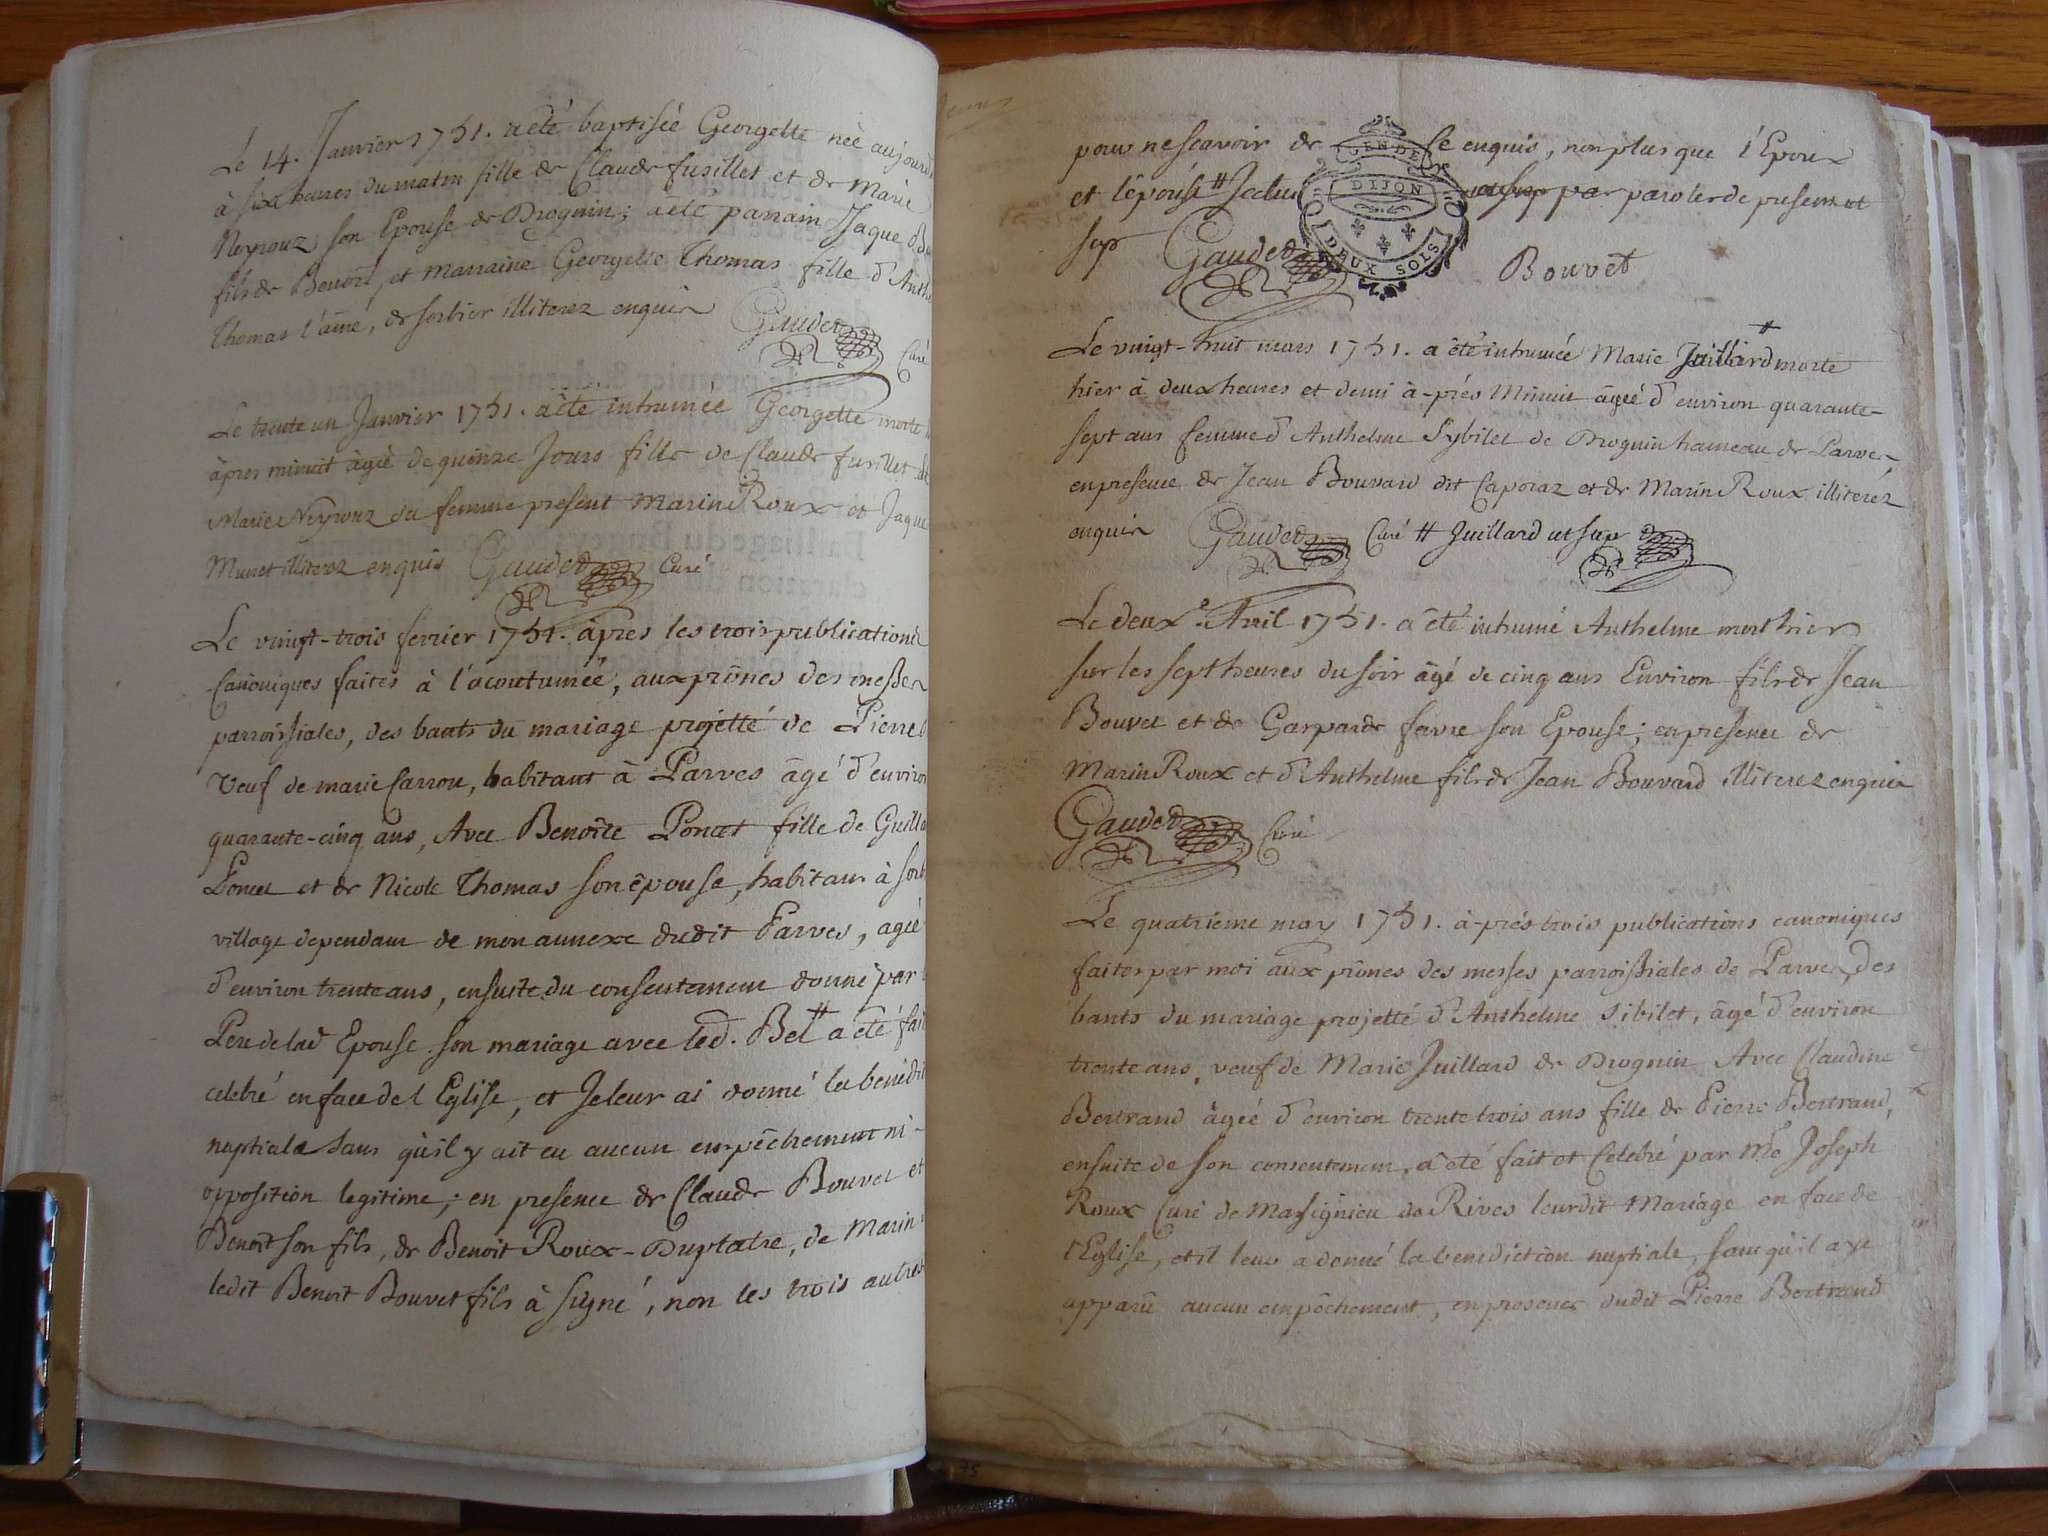 Le 14. Janvier 1751. a été baptisée Georgette née aujourd
à six heures du matin fille de Claude fusillet et de Marie
Neyrouz son Epouse de Drognin; a été parrain Jaque
fils de Benoit, et marraine Georgette Thomas fille d'Anth
Thomas l'ainé, de sorbier illiterez enquis Gaudet
Curé
Le trente un Janvier 1751. a été inhumée Georgette morte
àpres minuit âgée de quinze Jours fille de Claude fusillet
Marie Neyrouz sa femme present Marin Roux et Jaque
Musset illiterez enquis Gaudet Curé
Le vingt-trois février 1751. àpres les trois publications
Canoniques faites à l'acoutumée, aux prônes des messes
parroissiales, des bants du mariage projetté de Pierre
Veuf de marie Carrou, habitant à Parves âgé d'environ
quarante-cinq ans, Avec Benoîte Poncet fille de Guill
Poncet et de Nicole Thomas son épouse, habitans à sorb
village dependant de mon annexe dudit Parves, agée
d'environ trente ans, ensuite du consentement donné par
Pere de lad Epouse son mariage avec led. Bel # a été fait
celebré en face de l'Eglise, et Je leur ai donné la benedi
nuptiale sans qu'il y ait eu aucun empêchement ni-
opposition legitime; en presence de Claude Bouvet et
Benoit son fils, de Benoit Roux-Duplatre, de Marin
ledit Benoit Bouvet fils à signé, non les trois autres
pour ne scavoir de ce enquis, non plus que l'Epoux
et l'épouse # par paroles de present ut
sup Gaudet Bouvet
GENDE
DIJON
DEUX SOLS
Le vingt-huit mars 1751. a été inhumée Marie Juillard # morte
hier à deux heures et demi à-prés Minuit âgée d'environ quarante-
sept ans femme d'Anthelme Sybilet de Drognin hameau de Parves,
en presence de Jean Bouvard dit Caporaz et de Marin Roux illiterez
enquis Gaudet Curé # Juillard ut sup
Le deuxe. Avril 1751. a été inhumé Anthelme mort hier
sur les sept heures du soir âgé de cinq ans Environ fils de Jean
Bouvet et de Gasparde favre son Epouse; en presence de
Marin Roux et d'Anthelme fils de Jean Bouvard illiterez enquis
Gaudet Curé
Le quatrieme may 1751. à-prés trois publications canoniques
faites par moi aux prônes des messes parroissiales de Parves, des
bants du mariage projetté d'Anthelme Sibilet, âgé d'environ
trente ans, veuf de Marie Juillard de Drognin Avec Claudine
Bertrand âgée d'environ trente trois ans fille de Pierre Bertrand,
ensuite de son consentement, a été fait et Celebré par Me Joseph
Roux Curé de Massignieu de Rives leurdit Mariage en face de
l'Eglise, et il leur a donné la benediction nuptiale, sans qu'il aye
apparû aucun empêchement, en presence dudit Pierre Bertrand